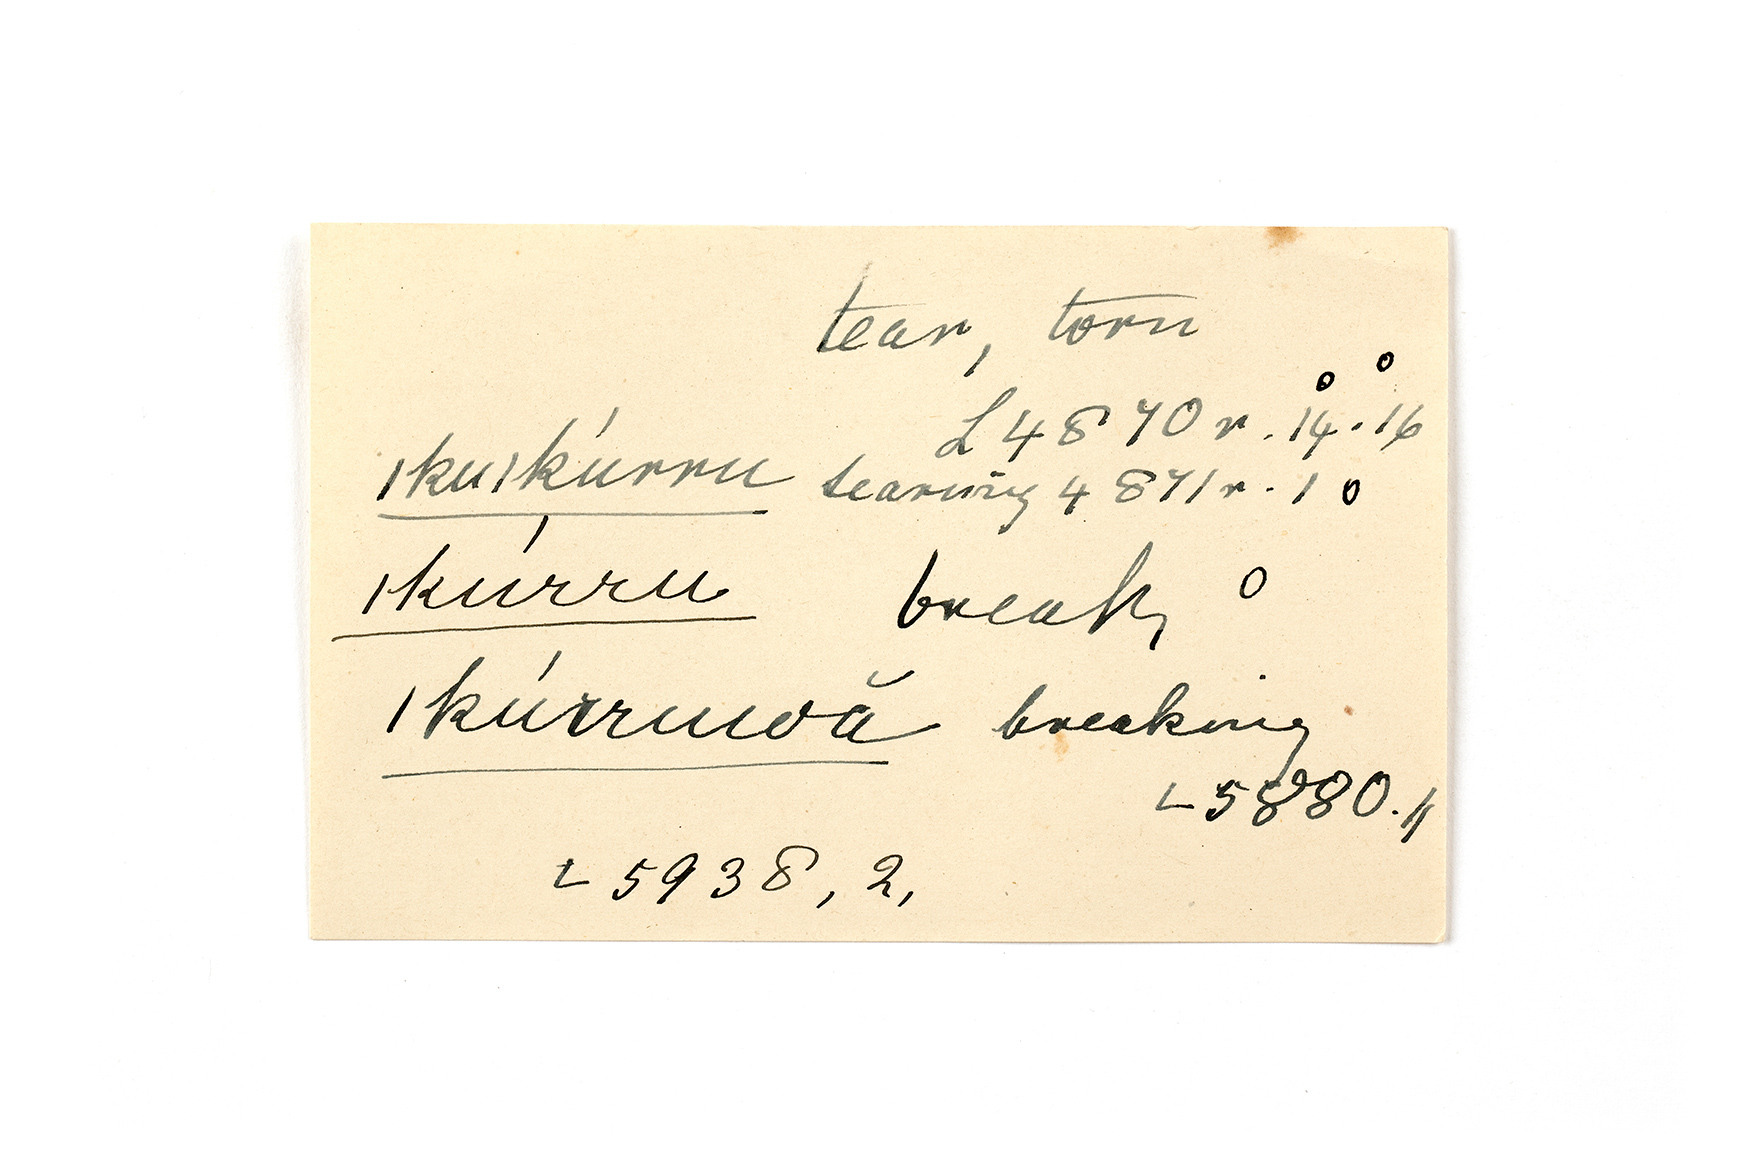 tear, torn
L 4870 r. 14. 16
ıkuıkúrru tearing 4871 r. 1
ıkúrru break,
ıkúrruwă breaking
L 5880. 11
L 5938, 2,